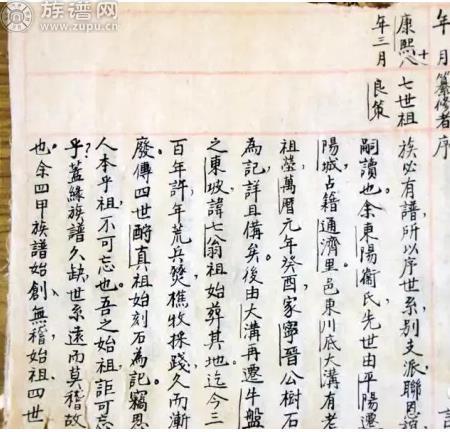 族谱网
www.zupu.cn
年月纂修者序
康熙十八年三月 七世祖良策
族必有譜所以序世系别支派聯恩
嗣讀也余東陽衞氏先世由平陽遷
陽城占籍通濟里邑東川底大溝有老
祖塋萬曆元年癸酉家寧晉公樹石
為記詳且備矣後由大溝再遷牛盤
之東坡諱七翁祖始葬其地迄今三
百年許年荒兵燹樵牧採踐久而漸
廢傳四世酧真祖始刻石為記竊思
人本乎祖不可忘也吾之始祖詎可忘
乎盖緣族譜久缺世系遠而莫稽故
也余四甲族譜始創無稽始祖四世